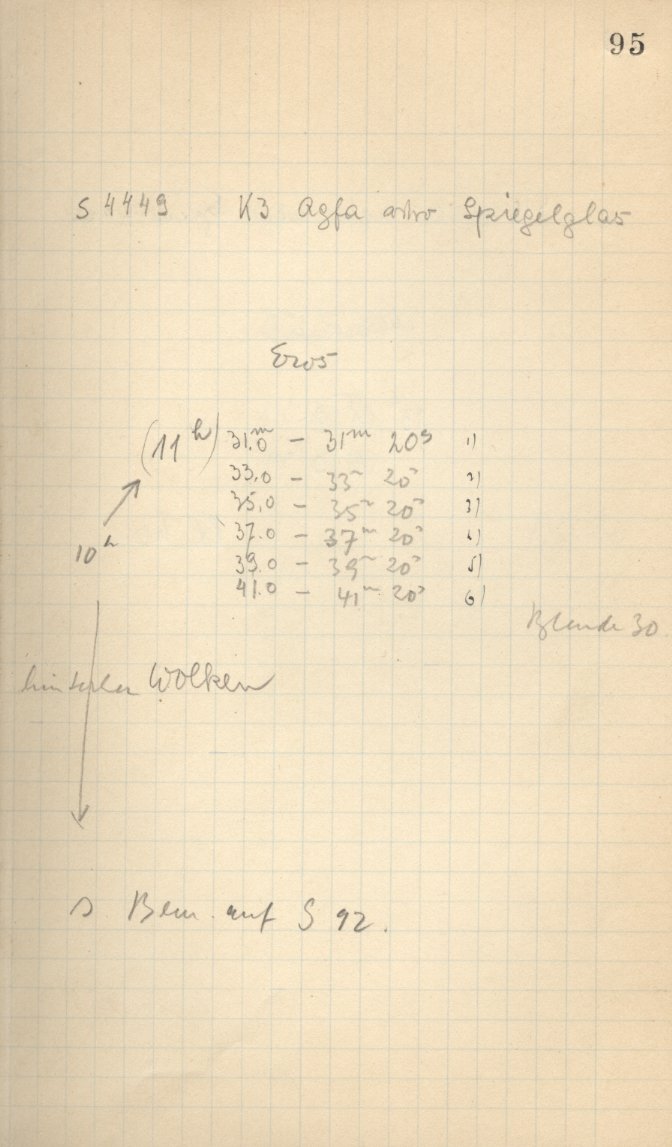 95
S 4449 K3 Agfa astro Spiegelglas
Eros
(11h) 31.0m – 31m 20s 1)
33.0 – 33m 20s 2)
35.0 – 35m 20s 3)
37.0 – 37m 20s 4)
39.0 – 39m 20s 5)
41.0 – 41m 20s 6)
10h
Blende 30
Wolken
s Bem. auf S 92.